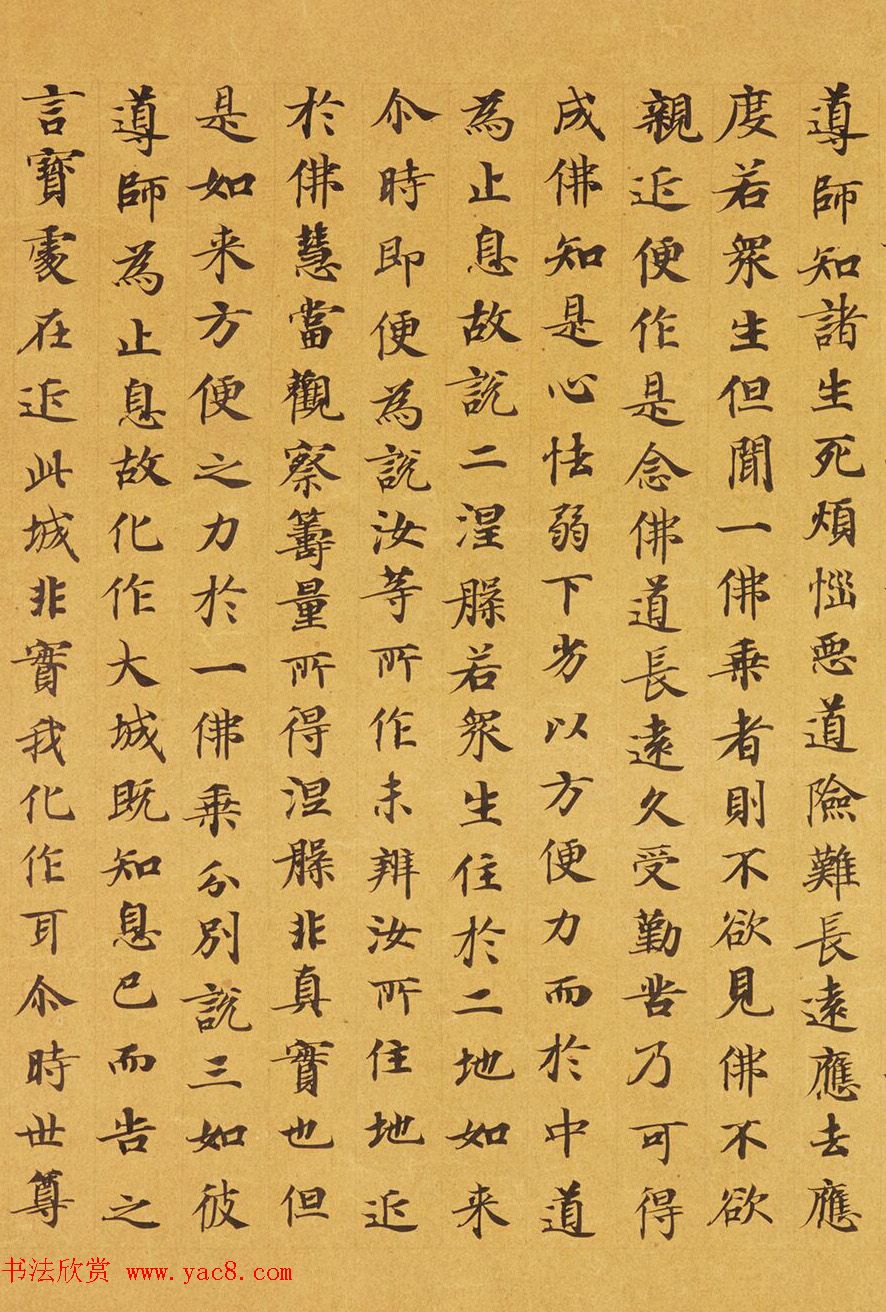 導師知諸生死煩惱惡道險難長遠應去應
度若眾生但聞一佛乗者則不欲見佛不欲
親近便作是念佛道長遠久受勤苦乃可得
成佛知是心怯弱下劣以方便力而於中道
為止息故說二涅槃若眾生住於二地如来
尒時即便為說汝等所作未辨汝所住地近
於佛慧當觀察籌量所得涅槃非真實也但
是如来方便之力於一佛乗分別說三如彼
導師為止息故化作大城既知息已而告之
言寶處在近此城非實我化作耳尒時世尊
书法欣赏 www.yac8.com